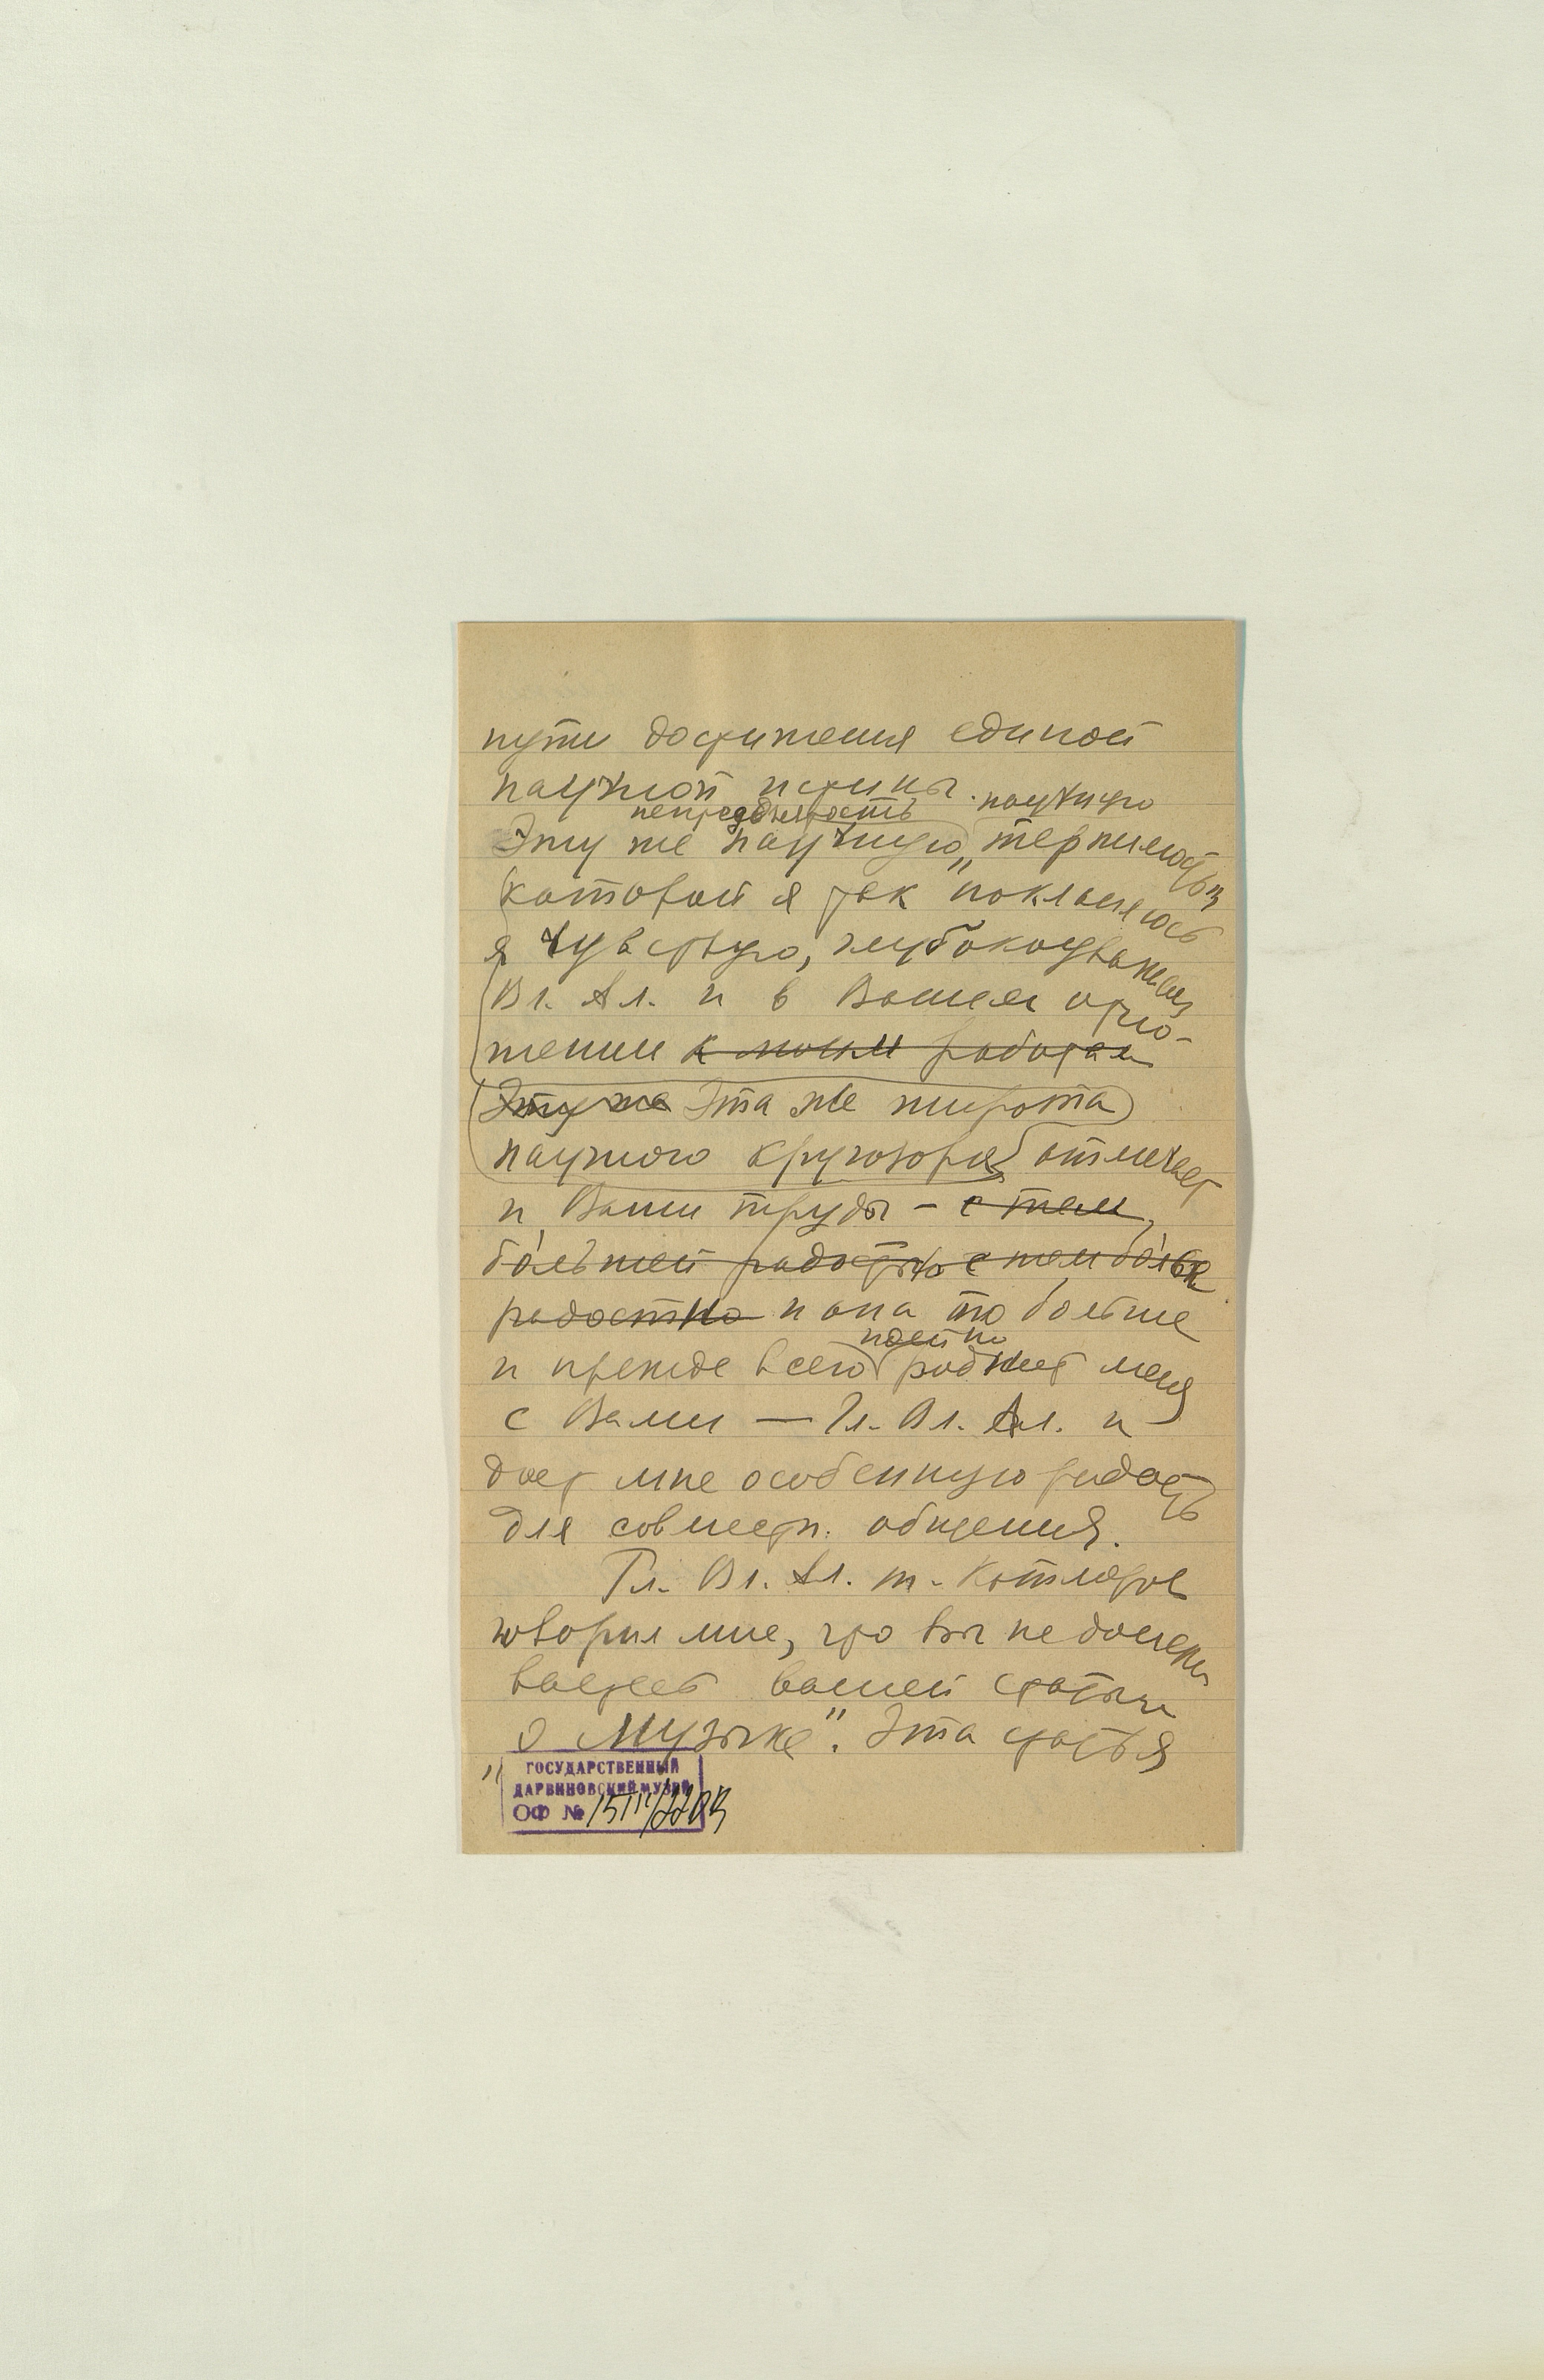 пути достижения единой
научной истины.
научную
непредвзятость
Эту же научную „терпимость"
которой я так поклоняюсь
я чувствую, глубокоуваж
Вл. Ал. и в Вашем отно-
шении к моим работам
Эту же Эта же широта
научного кругозора отличает
и Ваши труды – с тем
большей радостью с тем больш
радостно и она то больше
и прежде всего роднит меня
с Вами — Гл. Вл. Ал. и
дает мне особенную радость
для совместн. общения.
Гл. Вл. Ал. т. Котляров
говорил мне, что вы не
вашей статьи
„о Музыке". Эта статья
ГОСУДАРСТВЕННЫЙ
ДАРВИНОВСКИЙ МУЗЕЙ
ОФ №